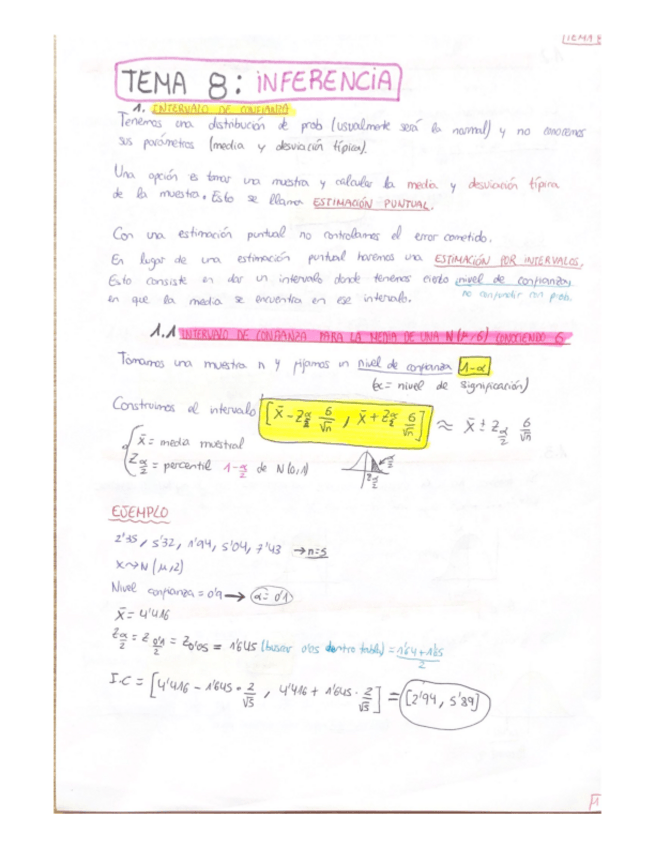 TEMA 8
TEMA 8: INFERENCIA
1. INTERVALO DE CONFIANZA
Tenemos una distribución de prob (usualmente será la normal) y no conocemos
sus parámetros (media y desviación típica).
Una opción es tomar una muestra y calcular la media y desviación típica
de la muestra. Esto se llama ESTIMACIÓN PUNTUAL.
Con una estimación puntual no controlamos el error cometido.
En lugar de una estimación puntual haremos una ESTIMACIÓN POR INTERVALOS.
Esto consiste en dar un intervalo donde tenemos cierto nivel de confianza
en que la media se encuentra en ese intervalo. no confundir con prob.
1.1 INTERVALO DE CONFIANZA PARA LA MEDIA DE UNA N(μ,σ) CONOCIENDO σ
Tomamos una muestra n y fijamos un nivel de confianza 1-α
(α = nivel de significación)
Construimos el intervalo [x̄ - Zα/2 σ/√n , x̄ + Zα/2 σ/√n] ≈ x̄ ± Zα/2 σ/√n
x̄ = media muestral
Zα/2 = percentil 1-α/2 de N(0,1)
α/2
Zα/2
EJEMPLO
2'35, 5'32, 1'94, 5'04, 7'43 → n=5
X~N(μ,2)
Nivel confianza = 0'9 → α = 0'1
x̄ = 4'416
Zα/2 = Z0'1/2 = Z0'05 = 1'645 (buscar 0'05 dentro tabla) = 1'64+1'65/2
I.C = [4'416 - 1'645 · 2/√5 , 4'416 + 1'645 · 2/√5] = [2'94, 5'89]